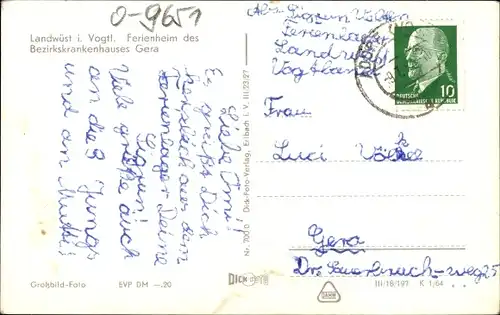 O-9651
Landwüst i. Vogtl. Ferienheim des
Bezirkskrankenhauses Gera
Liebe Omi!
Es grüßt Dich
herzlich aus dem
Ferienlager Deine
Viele Grüße auch
an die 3 Jungs
und an Mutti!
Nr. 700 D Dick-Foto-Verlag, Erlbach i. V. III/23/97
DICK
Großbild-Foto EVP DM —.20
Ferienlager
Landwüst
Vogtland
DEUTSCHE
DEMOKRATISCHE REPUBLIK
10
Frau
Luci Völker
Gera
weg 25
III/18/197 K 1/64